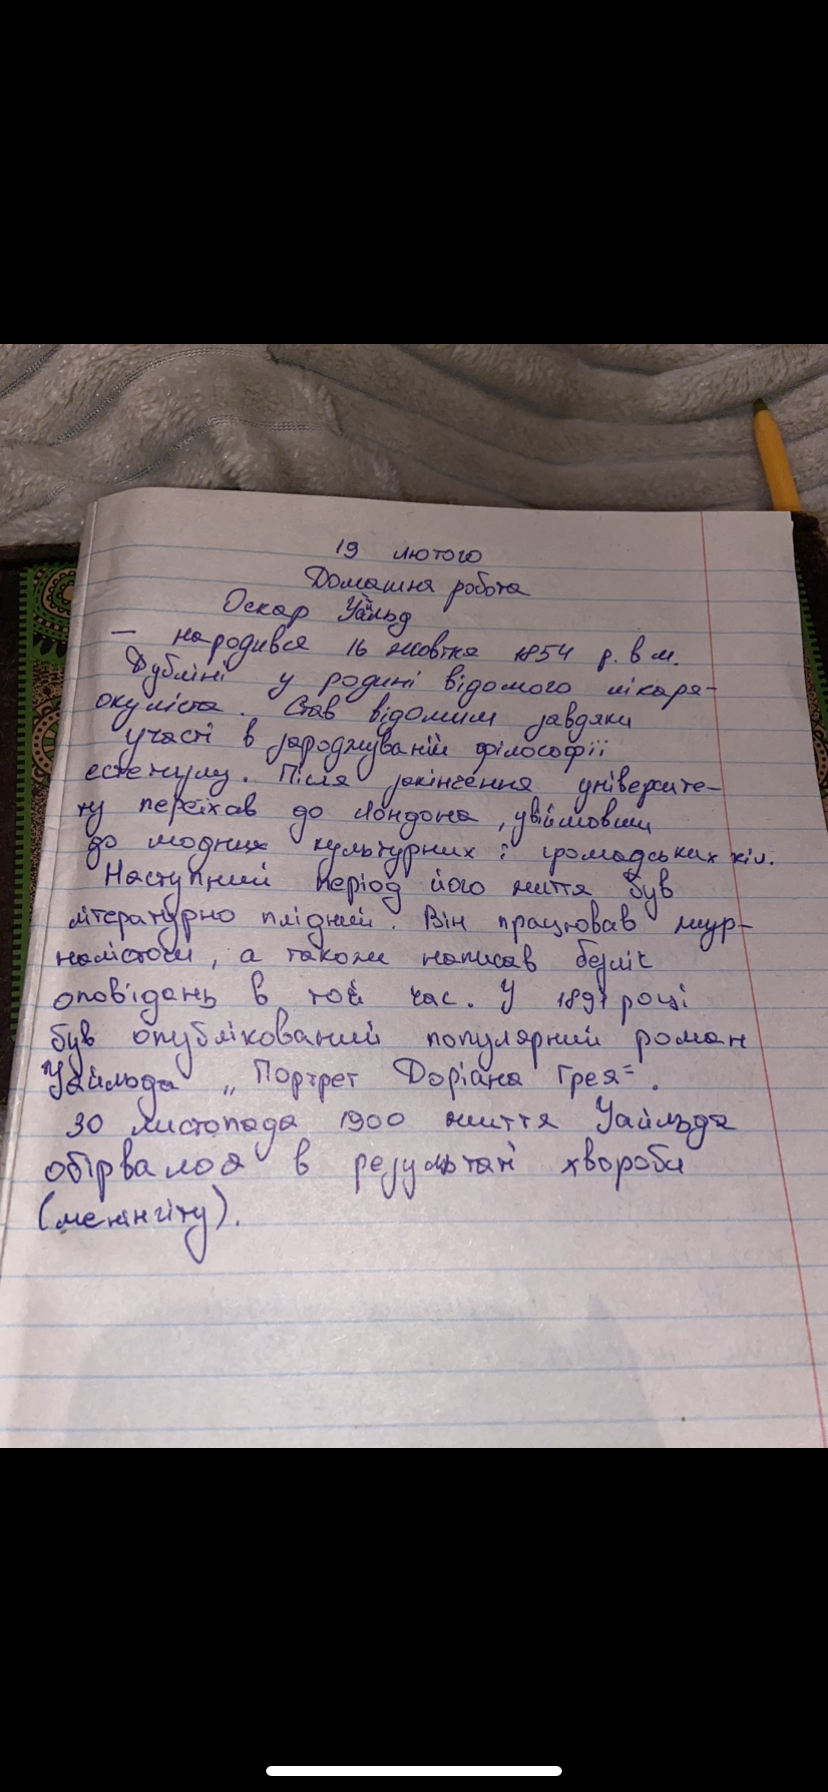 19 лютого
Домашня робота
Оскар Уайльд
– народився 16 жовтня 1854 р. в м.
Дубліні у родині відомого лікаря-
окуліста. Став відомим завдяки
участі в зароджуваній філософії
естетизму. Після закінчення університе-
ту переїхав до Лондона, увійшовши
до модних культурних і громадських кіл.
Наступний період його життя був
літературно плідний. Він працював жур-
налістом, а також написав безліч
оповідань в той час. У 1891 році
був опублікований популярний роман
Уайльда „Портрет Доріана Грея".
30 листопада 1900 життя Уайльда
обірвалося в результаті хвороби
(менінгіту).